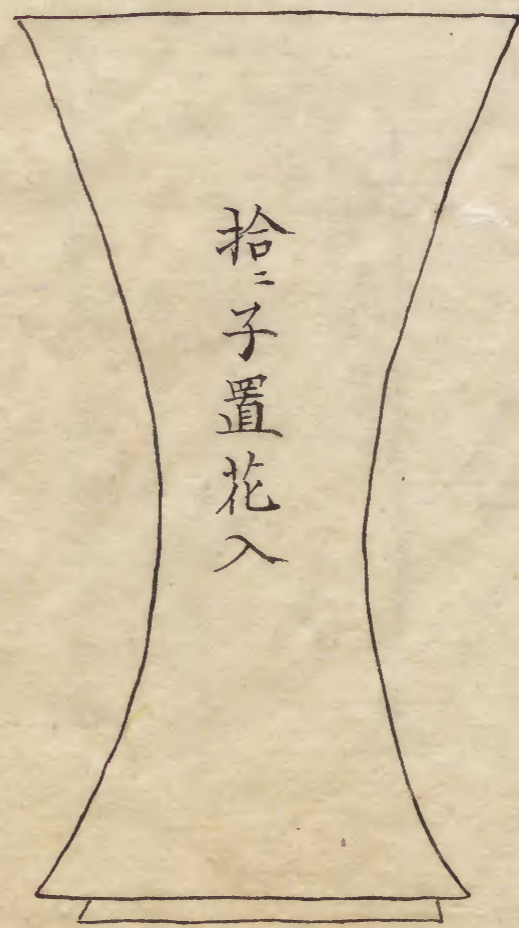 拾ニ子置花入